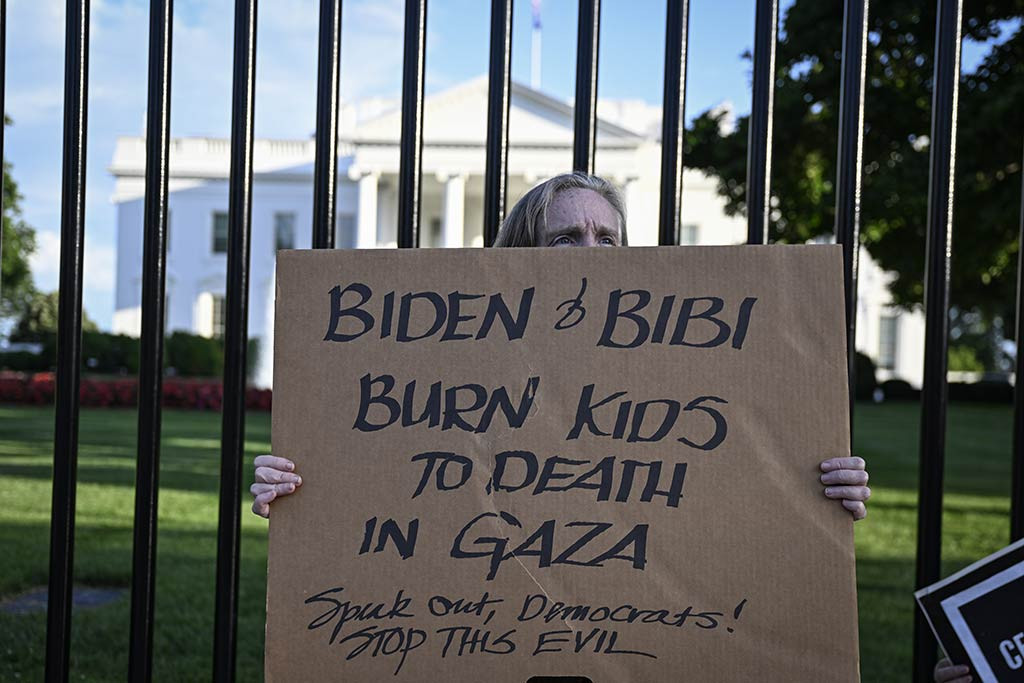 BIDEN & BIBI
BURN KIDS
TO DEATH
IN GAZA
Speak out, Democrats!
STOP THIS EVIL